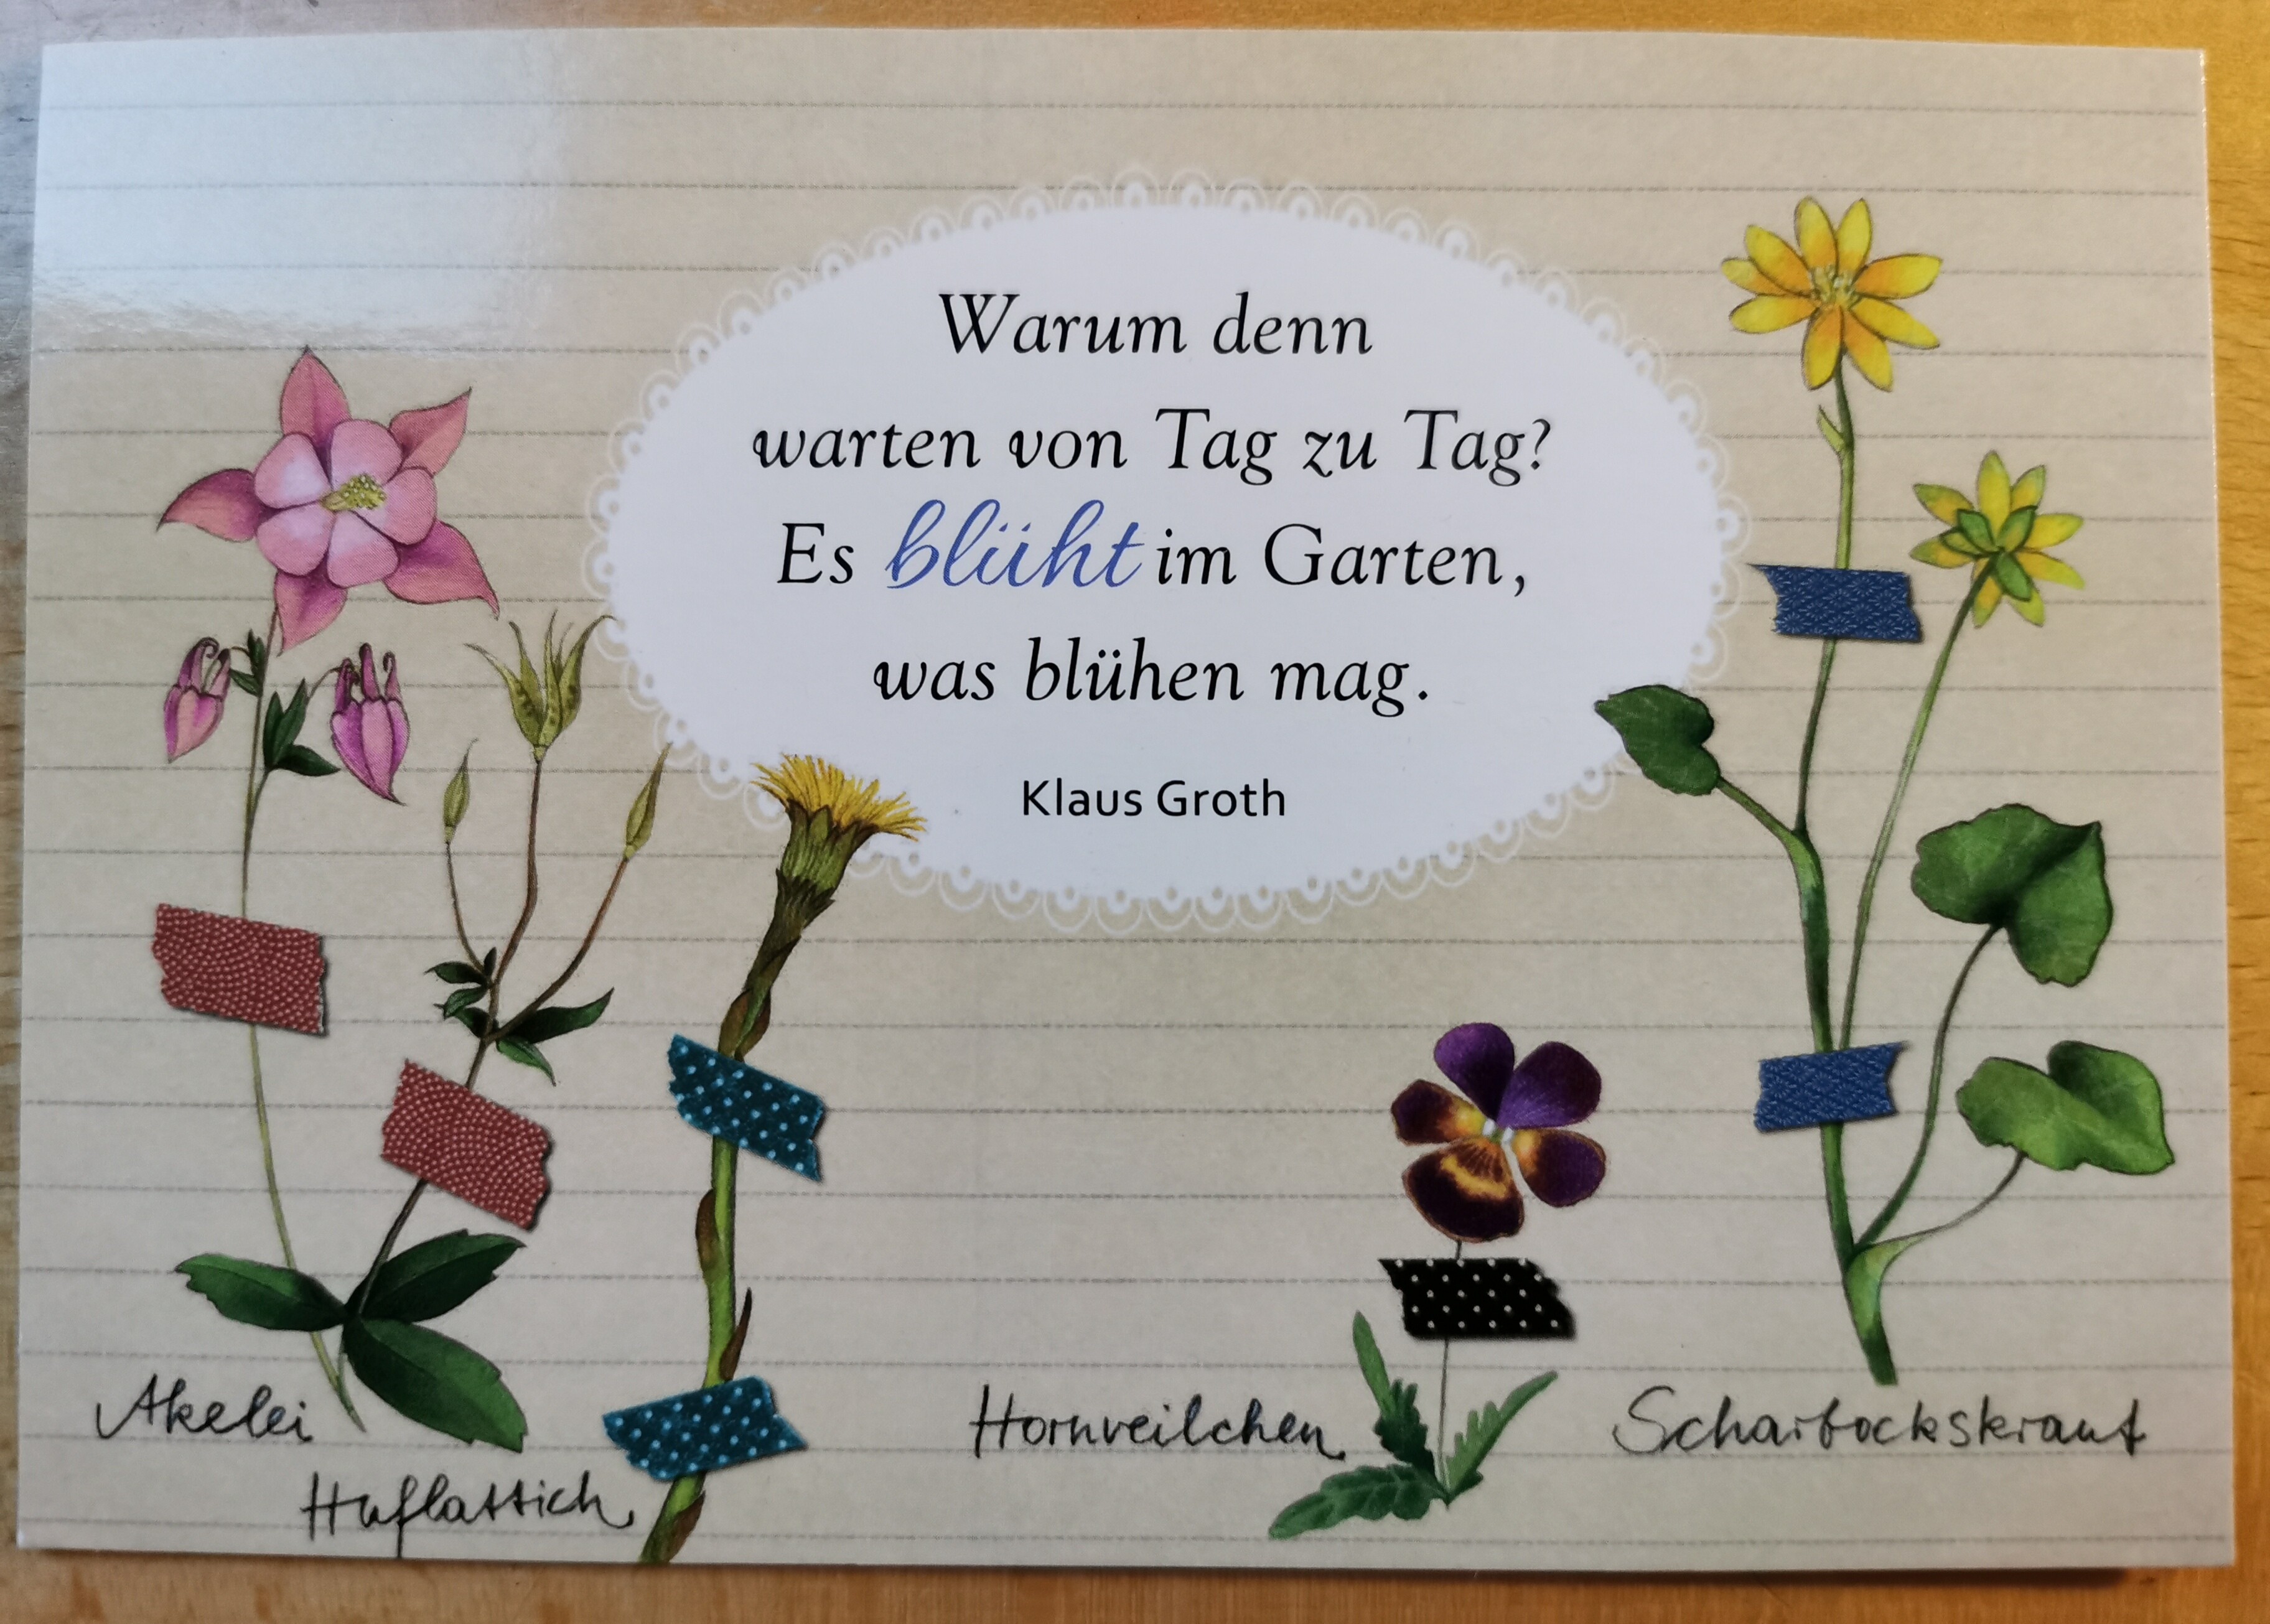 Warum denn
warten von Tag zu Tag?
Es blüht im Garten,
was blühen mag.
Klaus Groth
Akelei
Huflattich
Hornveilchen
Scharbockskraut